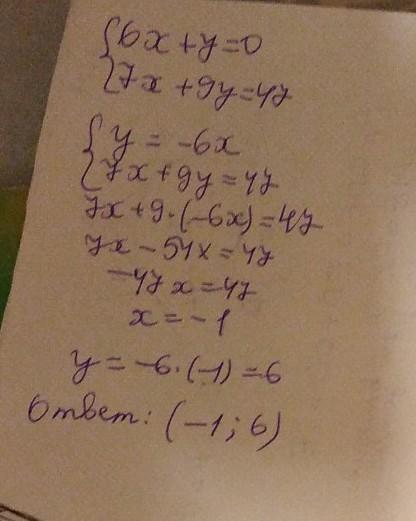 {6x+y=0
{7x+9y=47
{y=-6x
{7x+9y=47
7x+9·(-6x)=47
7x-54x=47
-47x=47
x=-1
y=-6·(-1)=6
Ответ: (-1; 6)